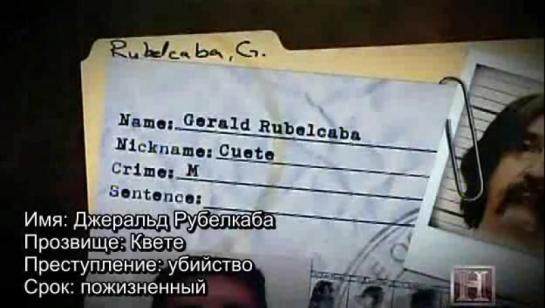 Rubelcaba, G.
Name: Gerald Rubelcaba
Nickname: Cuete
Crime: M
Sentence:
Имя: Джеральд Рубелкаба
Прозвище: Квете
Преступление: убийство
Срок: пожизненный
H